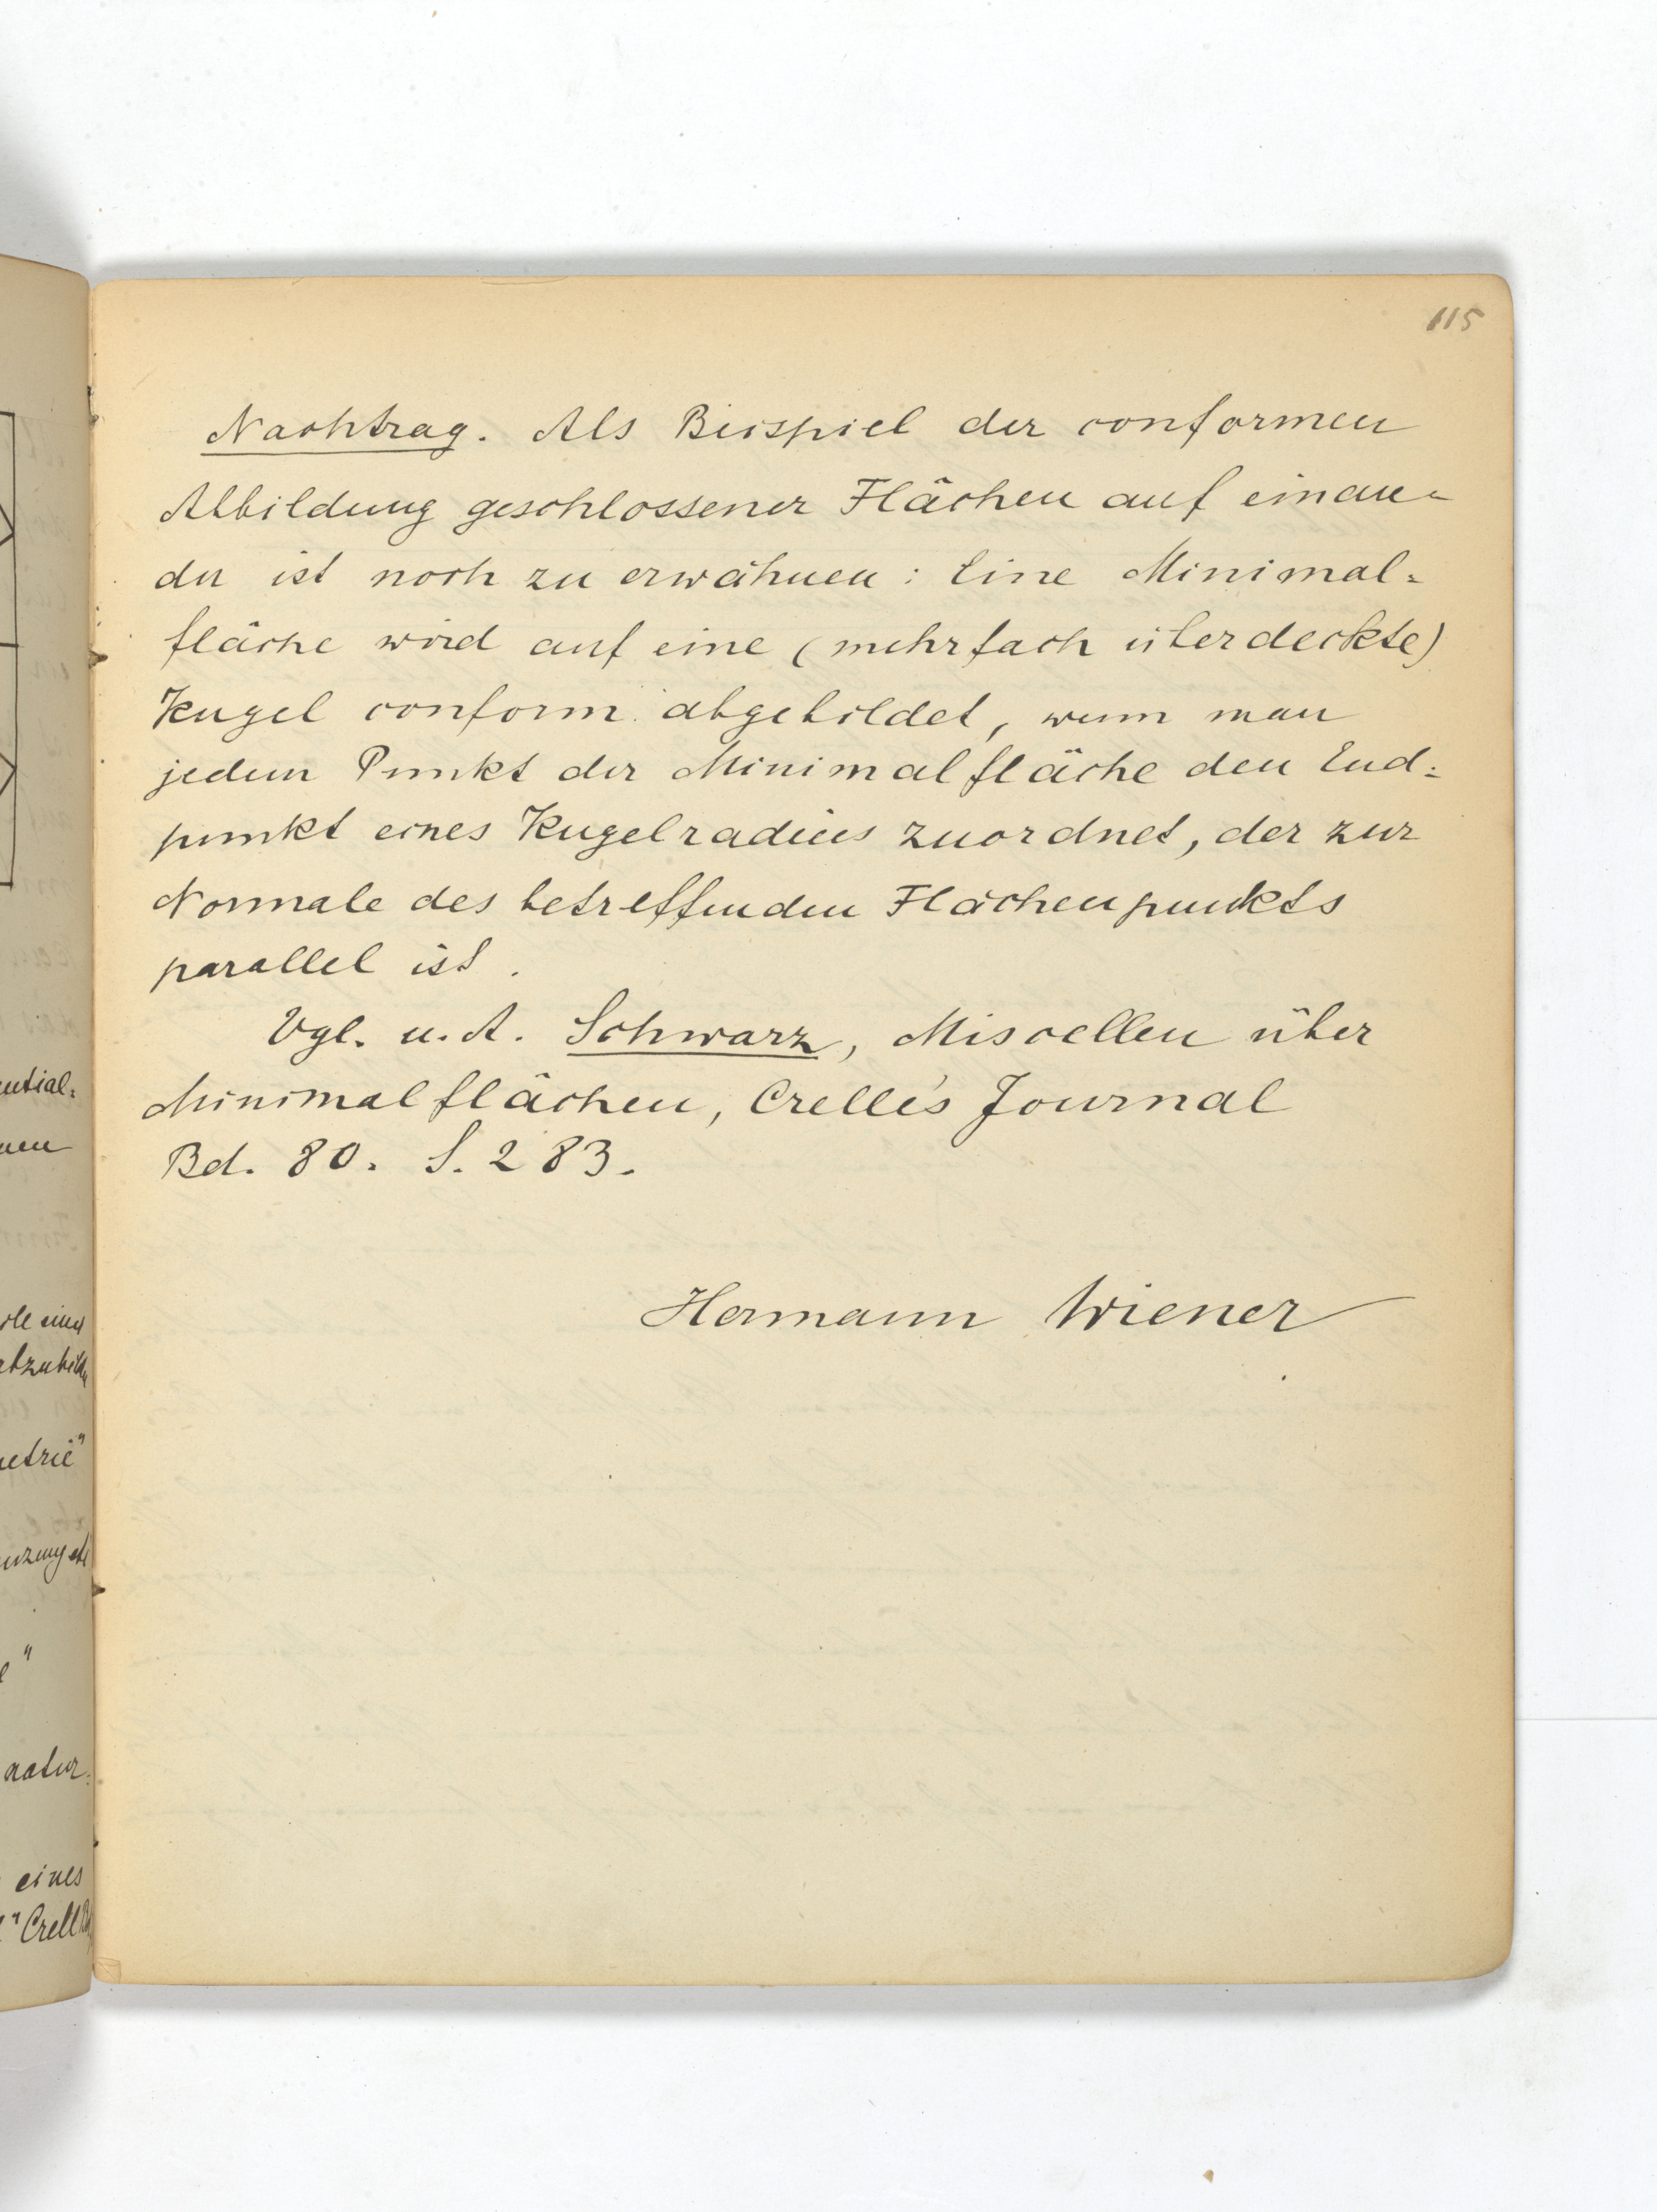 115
Nachtrag. Als Beispiel der conformen
Abbildung geschlossener Flächen auf einan-
der ist noch zu erwähnen: Eine Minimal-
fläche wird auf eine (mehrfach überdeckte)
Kugel conform abgebildet, wenn man
jedem Punkt der Minimalfläche den End-
punkt eines Kugelradius zuordnet, der zur
Normale des betreffenden Flächenpunkts
parallel ist.
Vgl. u. A. Schwarz, Miscellen über
Minimalflächen, Crelle's Journal
Bd. 80. S. 283.
Hermann Wiener
natur-
eines